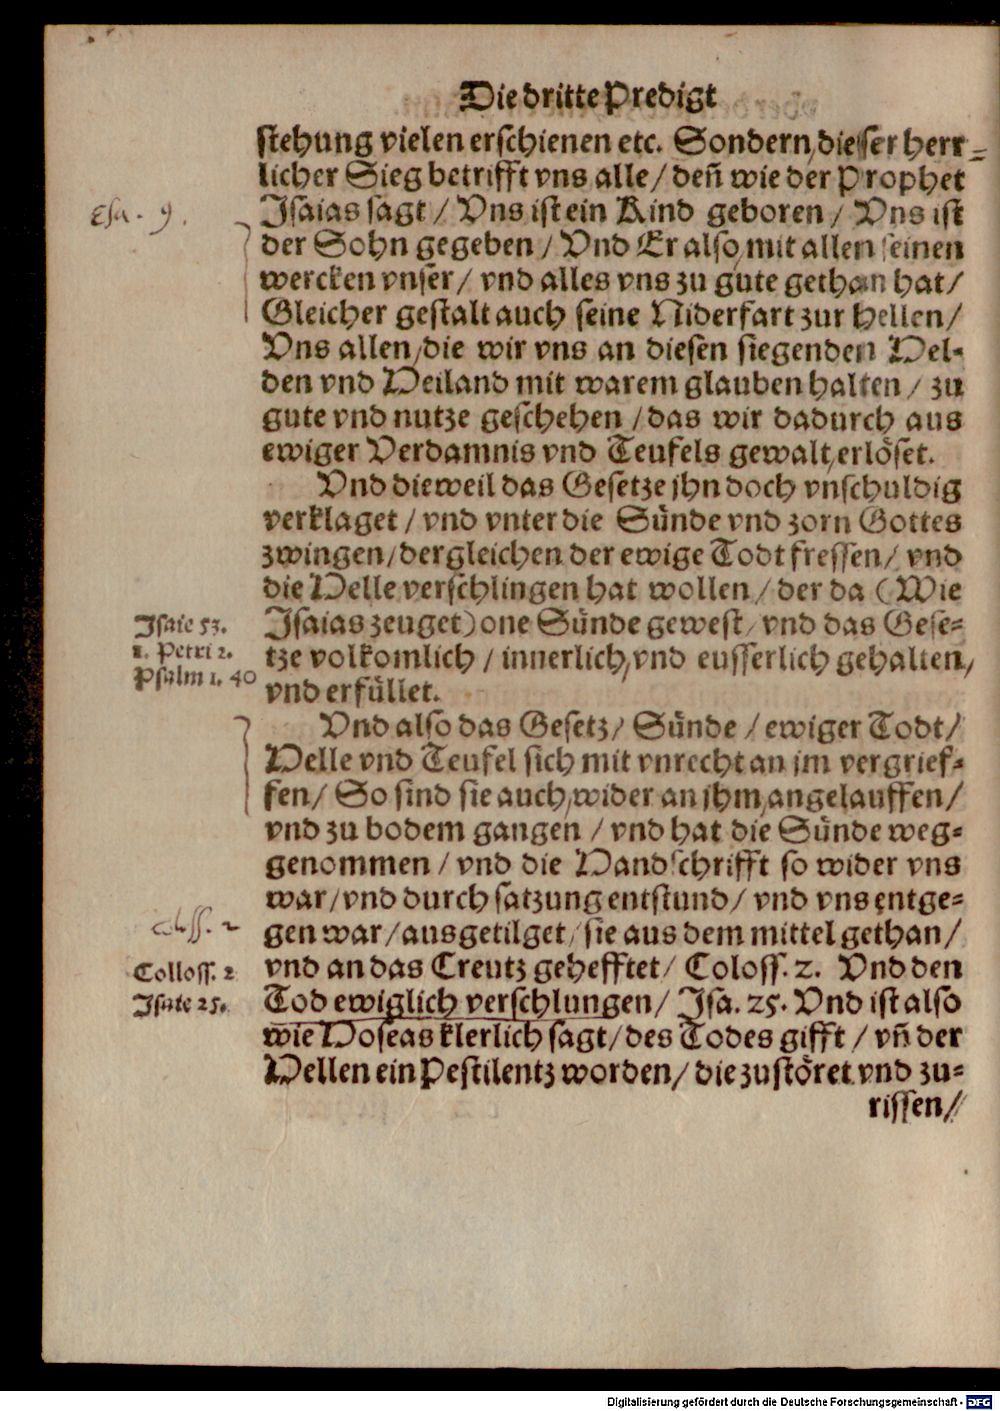 Die dritte Predigt
stehung vielen erschienen etc. Sondern, dieser herr=
licher Sieg betrifft vns alle / deñ wie der Prophet
Esa. 9.
Isaias sagt / Vns ist ein Kind geboren / Vns ist
der Sohn gegeben / Vnd Er also, mit allen seinen
wercken vnser / vnd alles vns zu gute gethan hat /
Gleicher gestalt auch seine Niderfart zur Hellen /
Vns allen, die wir vns an diesen siegenden Hel=
den vnd Heiland mit warem glauben halten / zu
gute vnd nutze geschehen / das wir dadurch aus
ewiger Verdamnis vnd Teufels gewalt, erlöset.
Vnd dieweil das Gesetze jhn doch vnschuldig
verklaget / vnd vnter die Sünde vnd zorn Gottes
zwingen / dergleichen der ewige Todt fressen / vnd
die Helle verschlingen hat wollen / der da (Wie
Isaie 53.
Isaias zeuget) one Sünde gewest / vnd das Gese=
1. Petri 2.
tze volkomlich / innerlich, vnd eusserlich gehalten,
Psalm 1. 40
vnd erfüllet.
Vnd also das Gesetz / Sünde / ewiger Todt /
Helle vnd Teufel sich mit vnrecht an jm vergrief=
fen / So sind sie auch, wider an jhm, angelauffen /
vnd zu bodem gangen / vnd hat die Sünde weg=
genommen / vnd die Handschrifft so wider vns
war / vnd durch satzung entstund / vnd vns entge=
Coloss. 2
gen war / ausgetilget / sie aus dem mittel gethan /
Colloss. 2
vnd an das Creutz gehefftet / Coloss. 2. Vnd den
Isaie 25.
Tod ewiglich verschlungen / Isa. 25. Vnd ist also
wie Hoseas klerlich sagt / des Todes gifft / vñ der
Hellen ein Pestilentz worden / die zustöret vnd zu=
rissen /
Digitalisierung gefördert durch die Deutsche Forschungsgemeinschaft - DFG